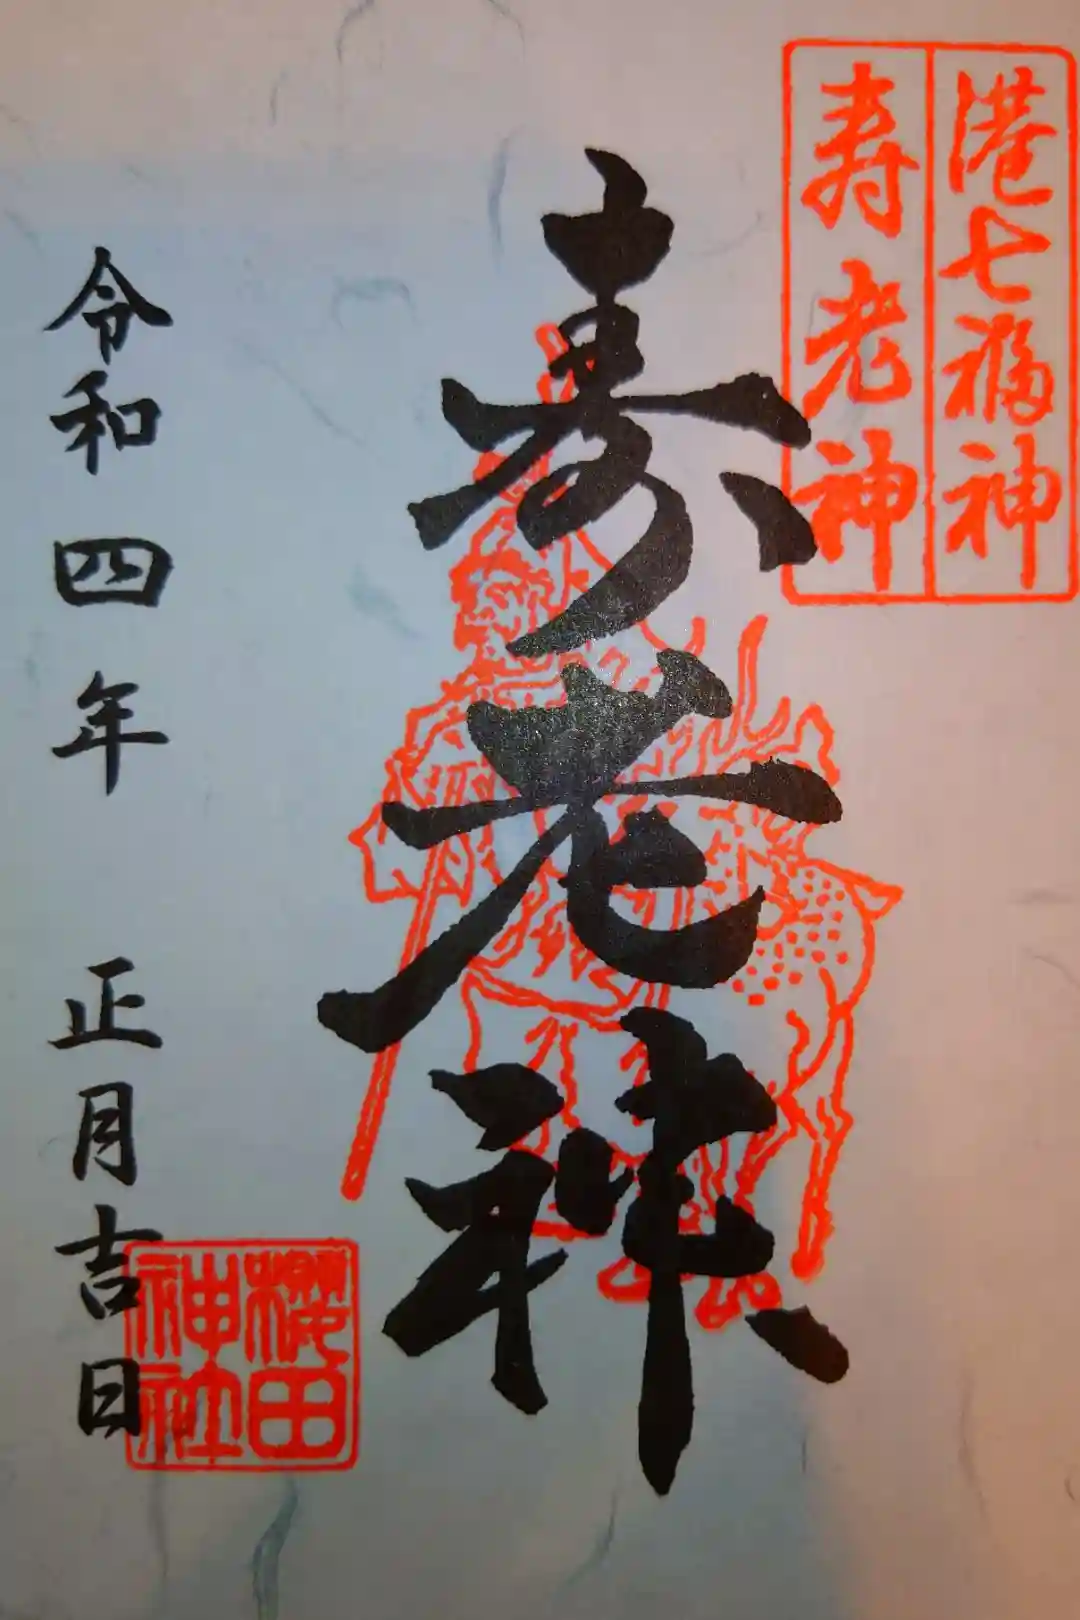 港七福神
寿老神
寿老神
令和四年 正月吉日
櫻田
神社